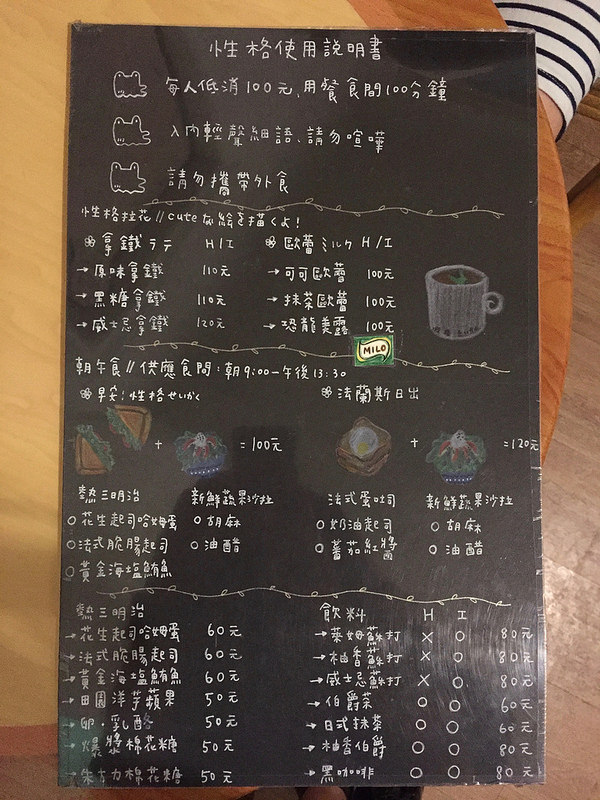 性格使用説明書
每人低消100元、用餐食間100分鐘
入內輕聲細語、請勿喧嘩
請勿攜帶外食
性格拉花//cuteな絵を描くよ!
拿鐵ラテ H/I
→原味拿鐵 110元
→黑糖拿鐵 110元
→威士忌拿鐵 120元
歐蕾ミルク H/I
→可可歐蕾 100元
→抹茶歐蕾 100元
→恐龍美露 100元
MILO
朝午食//供應食間:朝9:00-午後13:30
早安!性格せいかく
+ =100元
熱三明治
○花生起司哈姆蛋
○法式脆腸起司
○黃金海塩鮪魚
新鮮蔬果沙拉
○胡麻
○油醋
法蘭斯日出
+ =120元
法式蛋吐司
○奶油起司
○蕃茄紅醬
新鮮蔬果沙拉
○胡麻
○油醋
熱三明治
→花生起司哈姆蛋 60元
→法式脆腸起司 60元
→黃金海塩鮪魚 60元
→田園洋芋蘋果 50元
→卵・乳酪 50元
→爆漿棉花糖 50元
→朱古力棉花糖 50元
飲料 H I
→萊姆蘇打 X ○ 80元
→柚香蘇打 X ○ 80元
→威士忌蘇打 X ○ 80元
→伯爵茶 ○ ○ 60元
→日式抹茶 ○ ○ 60元
→柚香伯爵 ○ ○ 80元
→黑咖啡 ○ ○ 80元